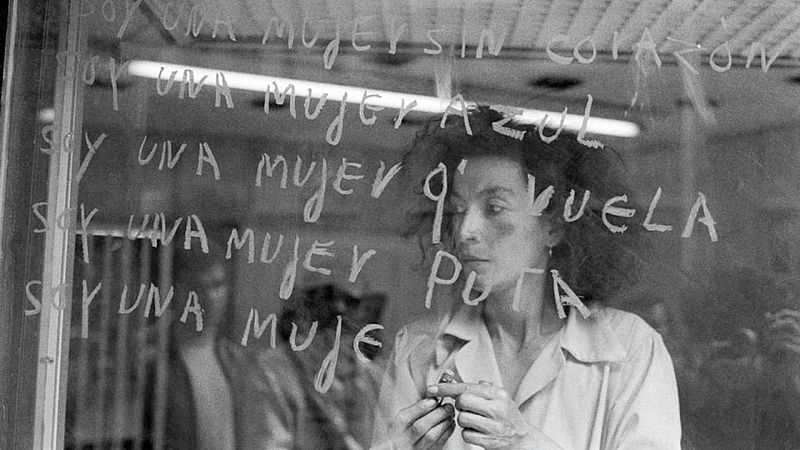 SOY UNA MUJER SIN CORAZÓN
SOY UNA MUJER AZUL
SOY UNA MUJER Q' VUELA
SOY UNA MUJER PUTA
SOY UNA MUJER